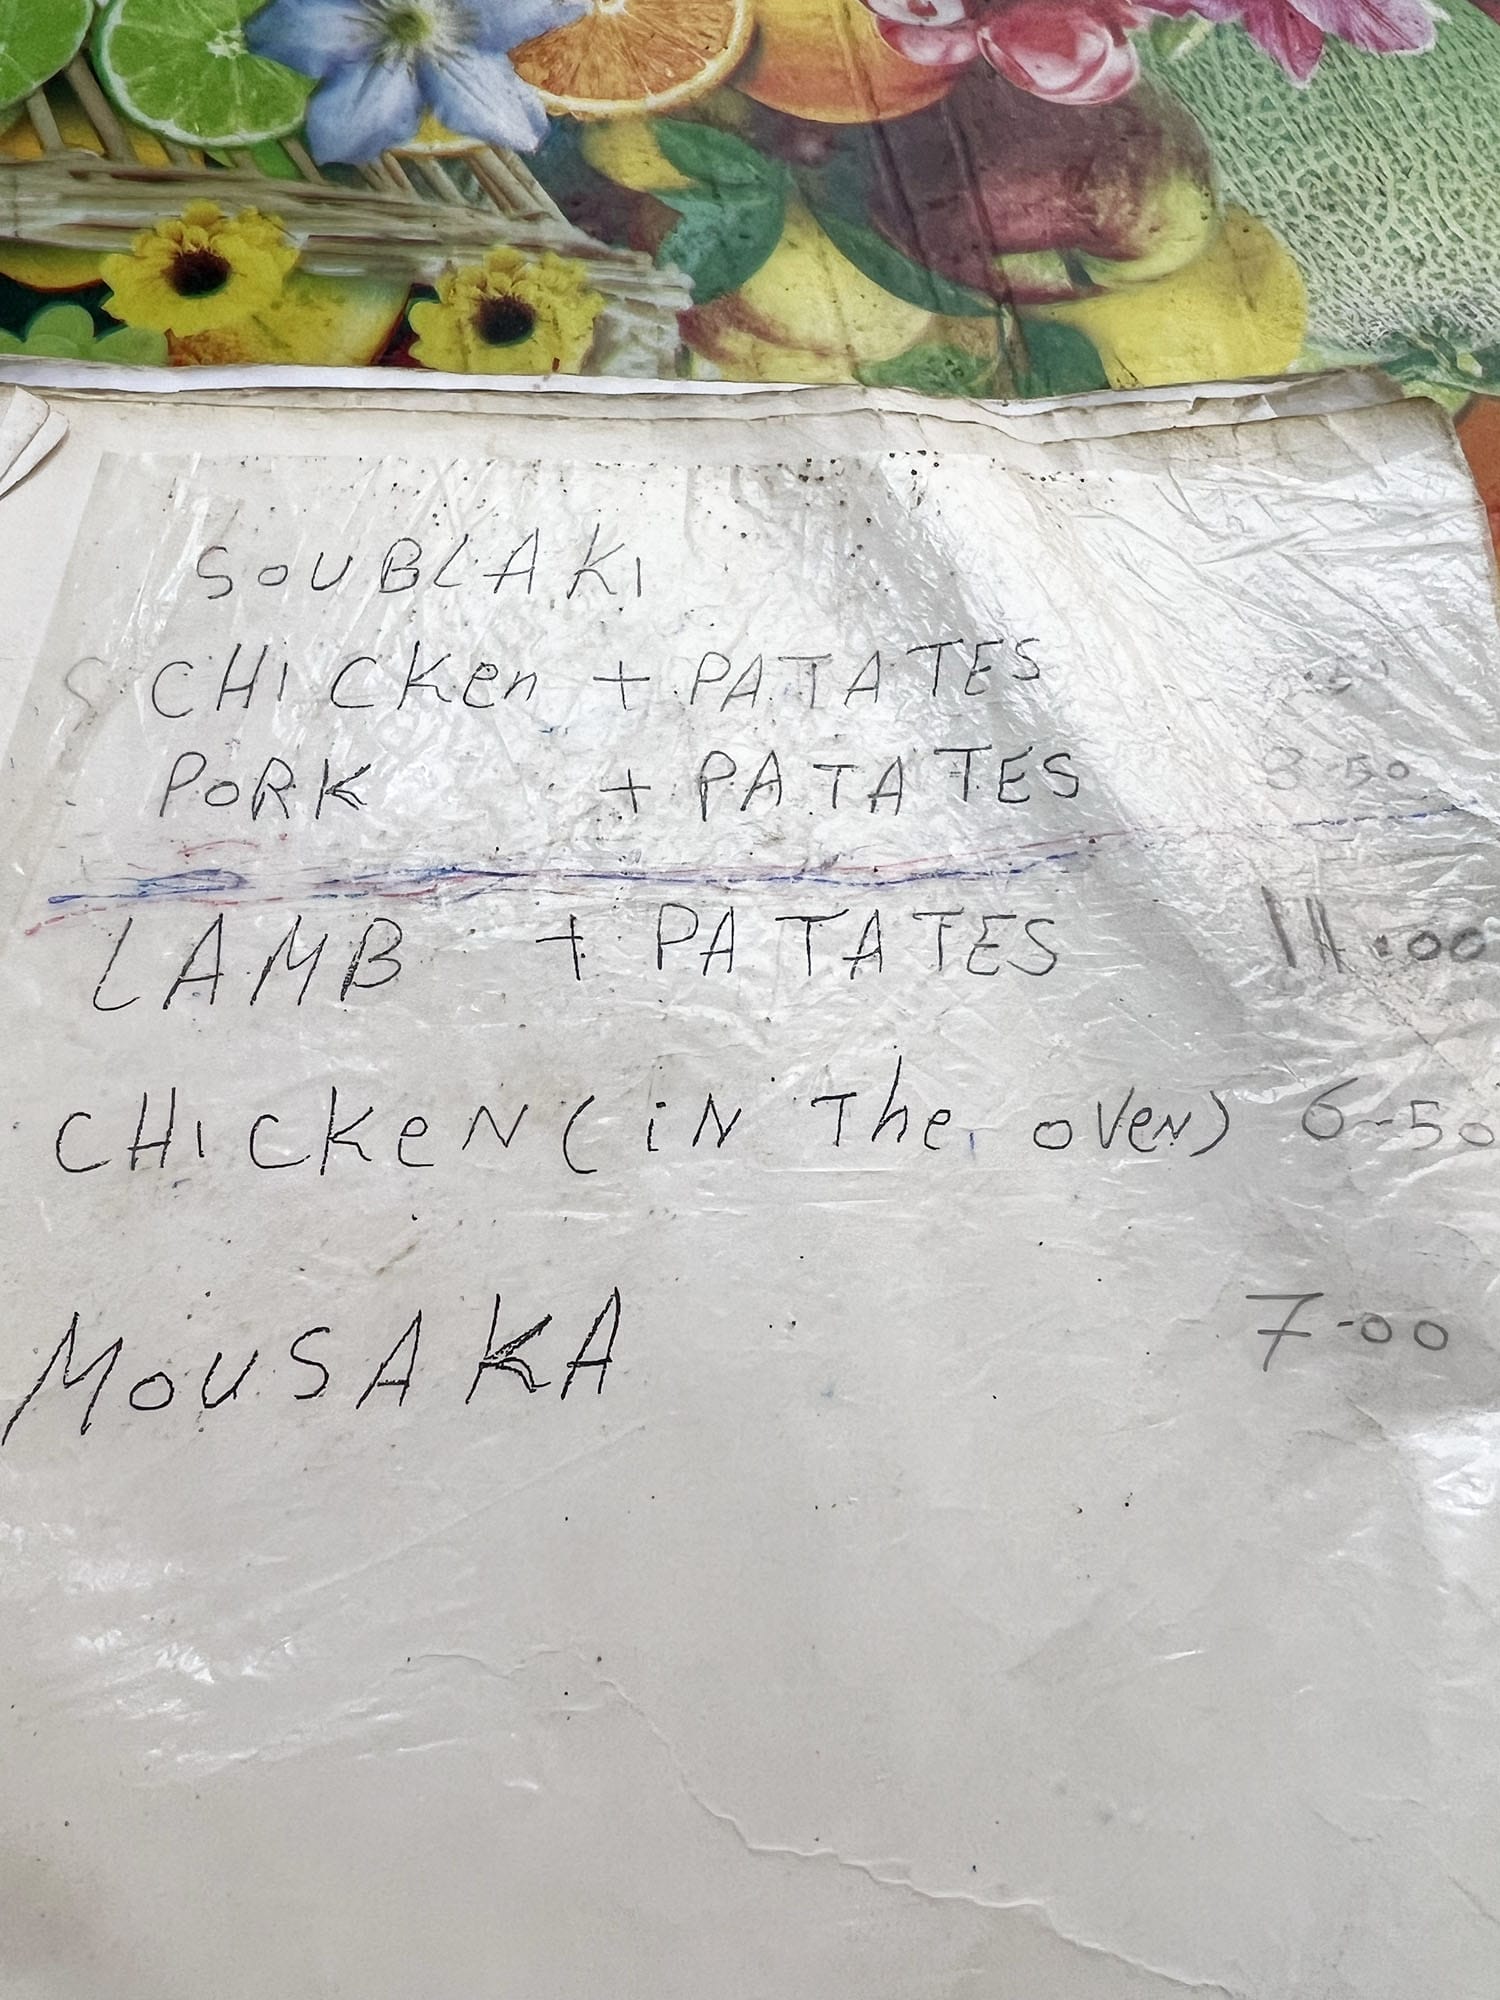 SOUBLAKI
CHICKen + PATATES
PORK + PATATES 8.50
LAMB + PATATES 11.00
CHICKeN (iN The oVeN) 6-50
MOUSAKA 7-00